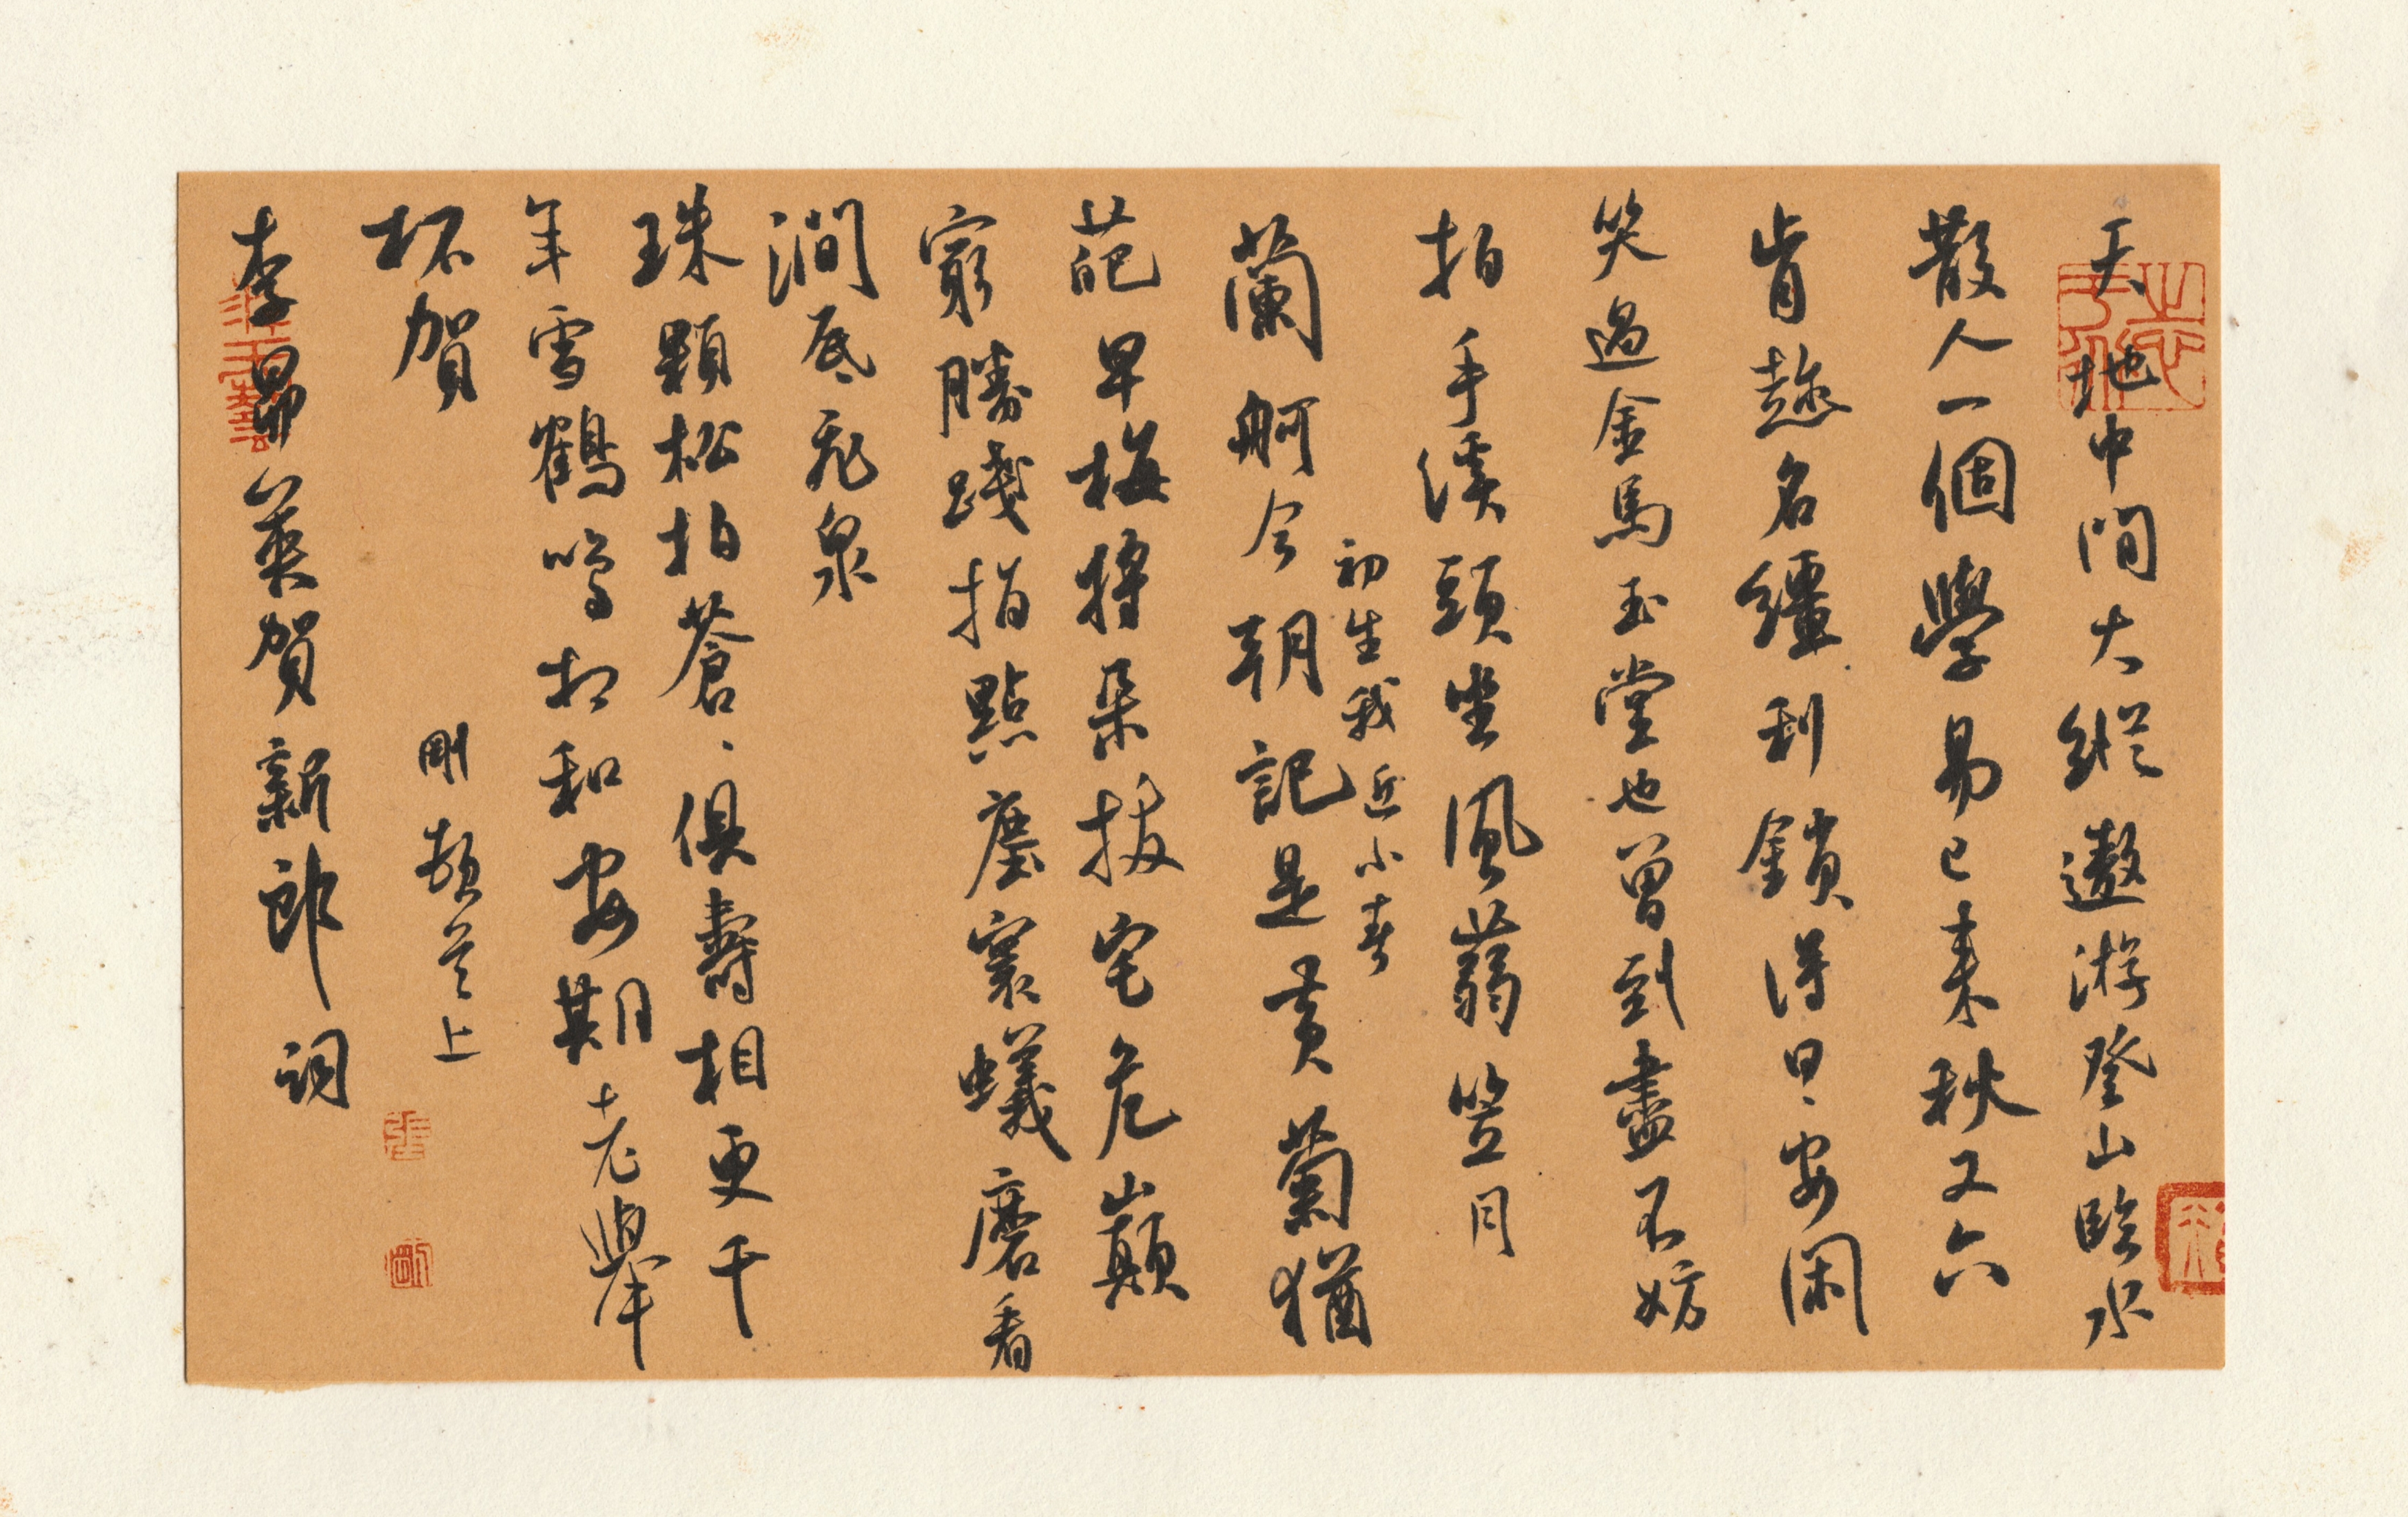 天地中間大縱遨游登山臨水
散人一個學易已來秋又六
肯趁名繮利鎖得日、安閑
笑過金馬玉堂也曾到盡不妨
拍手溪頭坐風蒻笠月
初生我近小春
蘭舸今朝記是黄菊猶
葩早梅將朵拔宅危巔
窮勝踐指點塵寰蟻磨看
澗底飛泉
珠顆松柏蒼、俱壽相更千
年雪鶴鳴相和安期老舉
杯賀
剛 上
李昴英賀新郎詞